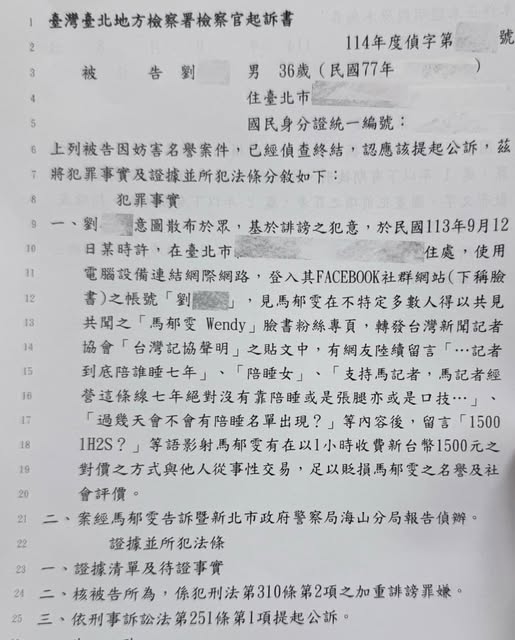 1 臺灣臺北地方檢察署檢察官起訴書
2 114年度偵字第 號
3 被 告 劉 男 36歲(民國77年 )
4 住臺北市
5 國民身分證統一編號:
6 上列被告因妨害名譽案件,已經偵查終結,認應該提起公訴,茲
7 將犯罪事實及證據並所犯法條分敘如下:
8 犯罪事實
9 一、劉 意圖散布於眾,基於誹謗之犯意,於民國113年9月12
10 日某時許,在臺北市 住處,使用
11 電腦設備連結網際網路,登入其FACEBOOK社群網站(下稱臉
12 書)之帳號「劉 」,見馬郁雯在不特定多數人得以共見
13 共聞之「馬郁雯 Wendy」臉書粉絲專頁,轉發台灣新聞記者
14 協會「台灣記協聲明」之貼文中,有網友陸續留言「…記者
15 到底陪誰睡七年」、「陪睡女」、「支持馬記者,馬記者經
16 營這條線七年絕對沒有靠陪睡或是張腿亦或是口技…」、
17 「過幾天會不會有陪睡名單出現?」等內容後,留言「1500
18 1H2S?」等語影射馬郁雯有在以1小時收費新台幣1500元之
19 對價之方式與他人從事性交易,足以貶損馬郁雯之名譽及社
20 會評價。
21 二、案經馬郁雯告訴暨新北市政府警察局海山分局報告偵辦。
22 證據並所犯法條
23 一、證據清單及待證事實
24 二、核被告所為,係犯刑法第310條第2項之加重誹謗罪嫌。
25 三、依刑事訴訟法第251條第1項提起公訴。